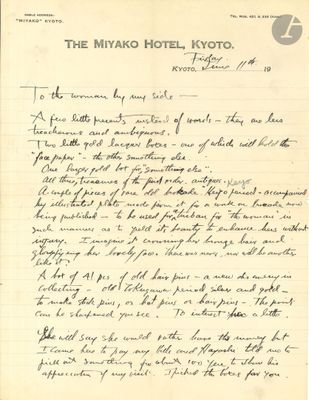 CABLE ADDRESS:
"MIYAKO" KYOTO.
THE MIYAKO HOTEL, KYOTO.
Friday
KYOTO, June 11th 19
To the woman by my side —
A few little presents instead of words — they are less
treacherous and ambiguous.
Two little gold lacquer boxes - one of which will hold the
"face paper" - the other something else.
One larger gold box for "something else".
All three treasures of the first order, antique.
A couple of pieces of rare old brocade period - accompanied
by illustrated plate made from it for a work on brocade now
being published — to be used for turban for "the woman" in
such manner as to yield its beauty to enhance hers without
injury. I imagine it crowning her bronze hair and
glorifying her lovely face. There was never, nor will be another
like it?
A box of 41 pcs of old hair pins - a new in
collecting - old Tokugawa period silver and gold -
to make stick pins, or hat pins or hair pins - The points
can be sharpened you see. To interest a little.
She will say she would rather have the money but
I came here to pay my bills and Hayashi told me to
pick out something for about 100 Yen to show his
appreciation of my visit. I picked the boxes for you